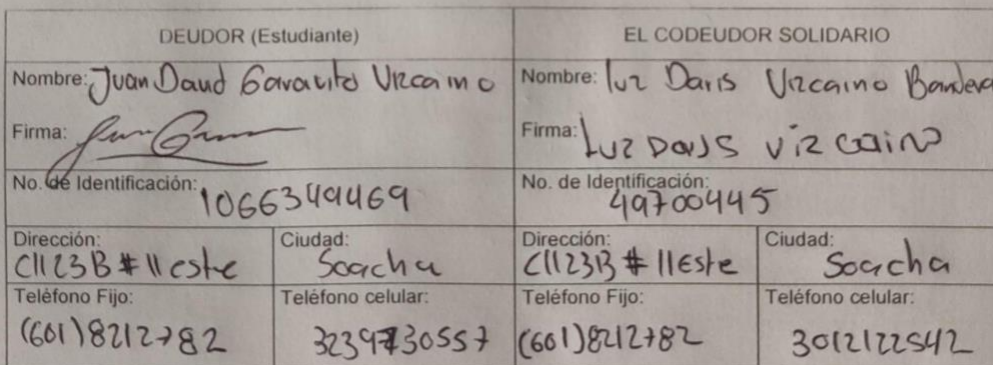 DEUDOR (Estudiante)
EL CODEUDOR SOLIDARIO
Nombre: Juan David Garavito Vizcaino
Nombre: luz Daris Vizcaino Bandera
Firma:
Firma: Luz Daris vizcaino
No. de Identificación: 1066349469
No. de Identificación: 49700445
Dirección: Cll23B # 11 este
Ciudad: Soacha
Dirección: Cll23B # 11Este
Ciudad: Soacha
Teléfono Fijo: (601)8212782
Teléfono celular: 3239730557
Teléfono Fijo: (601)8212782
Teléfono celular: 3012122542